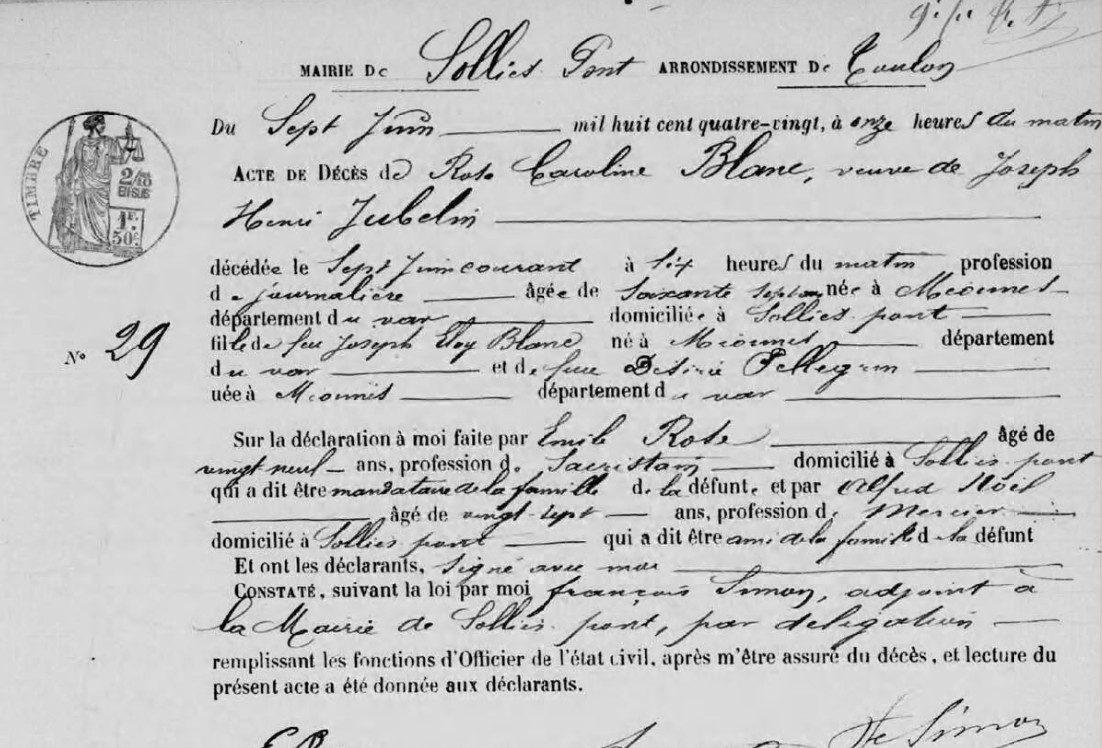 MAIRIE De Solliès Pont ARRONDISSEMENT De Toulon
Du Sept Juin mil huit cent quatre-vingt, à onze heures du matin
ACTE DE DÉCÈS de Rose Caroline Blanc, veuve de Joseph
Henri Jubelin
TIMBRE
2/10 EN SUS
1F. 50c.
décédée le Sept Juin courant à six heures du matin profession
de journalière âgée de soixante sept ans née à Méounes
département du var domiciliée à Solliès pont
N° 29
fille de feu Joseph Eloy Blanc né à Méounes département
du var et de feue Désirée Pellegrin
née à Méounes département du var
Sur la déclaration à moi faite par Emile Rose âgé de
vingt neuf ans, profession de Sacristain domicilié à Solliès pont
qui a dit être mandataire de la famille de la défunte et par Alfred Noël
âgé de vingt-sept ans, profession de Mercier
domicilié à Solliès pont qui a dit être ami de la famille de la défunt
Et ont les déclarants, signé avec moi
CONSTATÉ, suivant la loi par moi françois Simon, adjoint à
la Mairie de Solliès pont, par délégation
remplissant les fonctions d'Officier de l'état civil, après m'être assuré du décès, et lecture du
présent acte a été donnée aux déclarants.
Simon